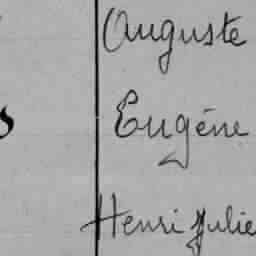 Auguste
Eugène
Henri Julie